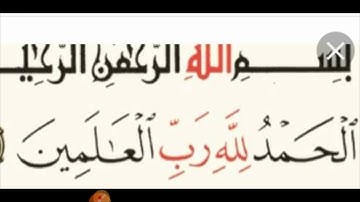 بِسْمِ اللَّهِ الرَّحْمَٰنِ الرَّحِي
الْحَمْدُ لِلَّهِ رَبِّ الْعَالَمِينَ